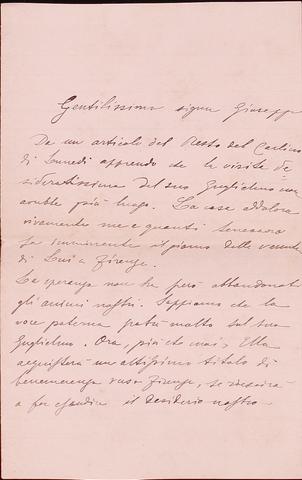 Gentilissimo signor Giuseppe
Da un articolo del Resto del Carlino
di Lunedì apprendo che la visita de
sideratissima del suo Guglielmo non
avrebbe più luogo. La cosa addolora
vivamente me e quanti
imminente il giorno della venuta
di Lui a Firenze.
La speranza non ha però abbandonato
gli animi nostri. Sappiamo che la
voce paterna potrà molto sul suo
Guglielmo. Ora, più che mai, Ella
acquisterà un altissimo titolo di
benemerenza verso Firenze, se riescirà
a far esaudire il desiderio nostro